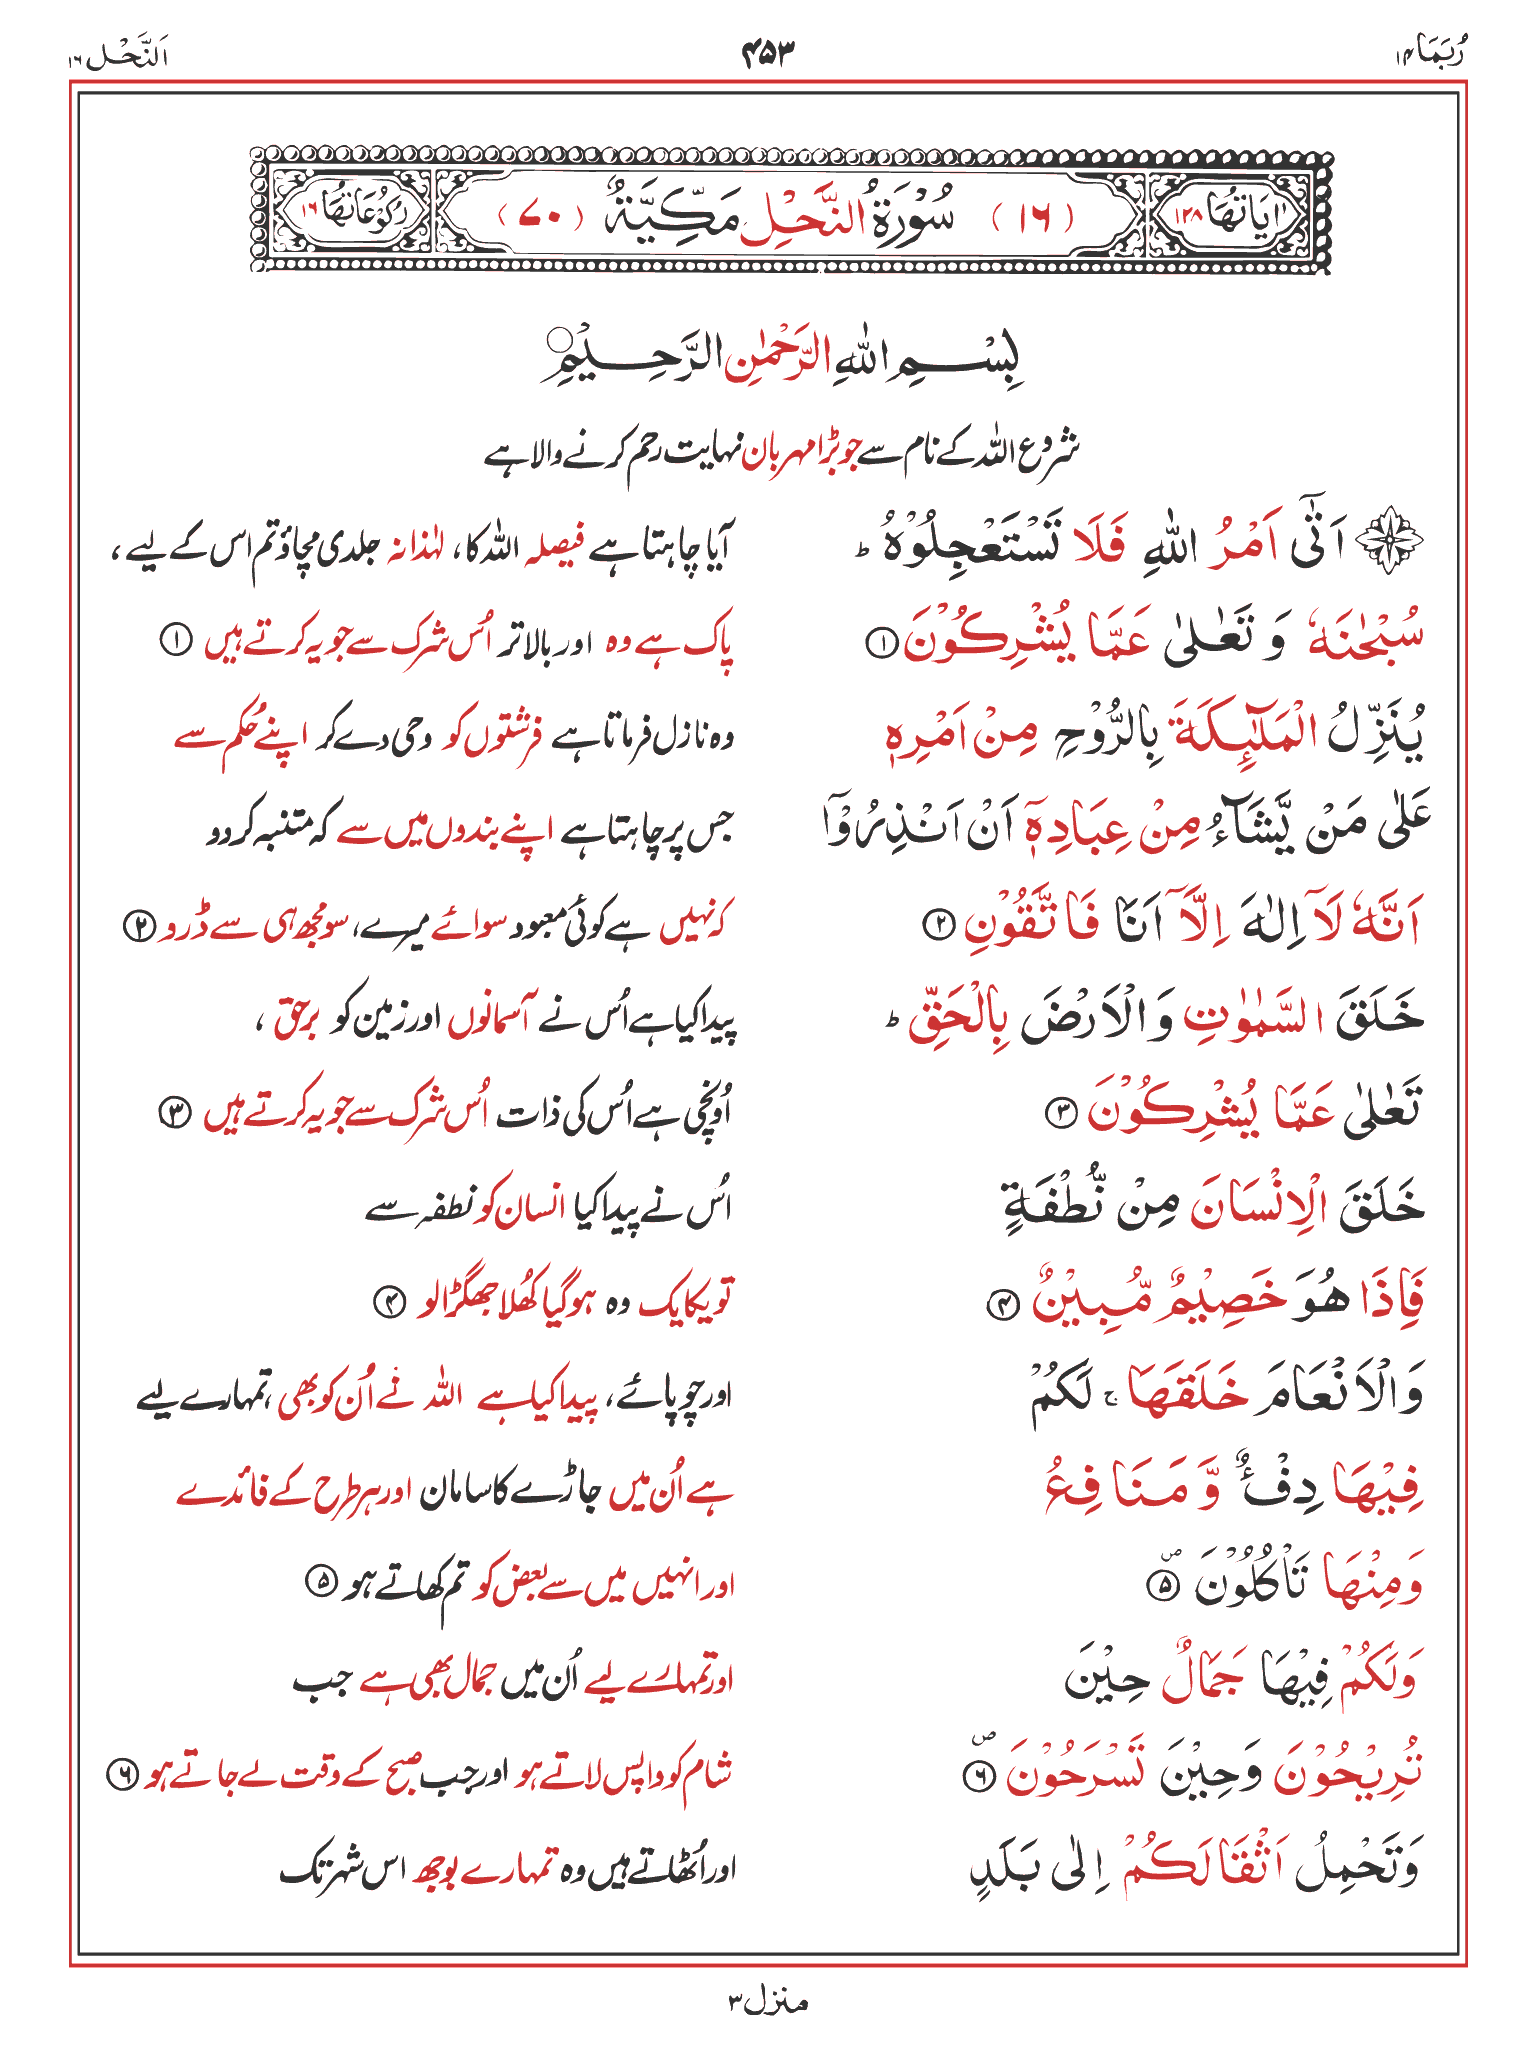 رُبَمَا ۱۴ ۴۵۳ اَلنَّحْل ۱۶
اٰيَاتُهَا ۱۲۸ (۱۶) سُوْرَةُ النَّحْلِ مَكِّيَّةٌ (۷۰) رُكُوْعَاتُهَا ۱۶
بِسْمِ اللّٰهِ الرَّحْمٰنِ الرَّحِيْمِ ○
شروع اللہ کے نام سے جو بڑا مہربان نہایت رحم کرنے والا ہے
اَتٰٓى اَمْرُ اللّٰهِ فَلَا تَسْتَعْجِلُوْهُ ؕ آیا چاہتا ہے فیصلہ اللہ کا، لہٰذا نہ جلدی مچاؤ تم اس کے لیے،
سُبْحٰنَهٗ وَ تَعٰلٰى عَمَّا يُشْرِكُوْنَ ۱ پاک ہے وہ اور بالاتر اُس شرک سے جو یہ کرتے ہیں ۱
يُنَزِّلُ الْمَلٰٓئِكَةَ بِالرُّوْحِ مِنْ اَمْرِهٖ وہ نازل فرماتا ہے فرشتوں کو وحی دے کر اپنے حُکم سے
عَلٰى مَنْ يَّشَآءُ مِنْ عِبَادِهٖٓ اَنْ اَنْذِرُوْٓا جس پر چاہتا ہے اپنے بندوں میں سے کہ متنبہ کر دو
اَنَّهٗ لَآ اِلٰهَ اِلَّآ اَنَا فَاتَّقُوْنِ ۲ کہ نہیں ہے کوئی معبود سوائے میرے، سو مجھ ہی سے ڈرو ۲
خَلَقَ السَّمٰوٰتِ وَ الْاَرْضَ بِالْحَقِّ ؕ پیدا کیا ہے اُس نے آسمانوں اور زمین کو برحق ،
تَعٰلٰى عَمَّا يُشْرِكُوْنَ ۳ اُونچی ہے اُس کی ذات اُس شرک سے جو یہ کرتے ہیں ۳
خَلَقَ الْاِنْسَانَ مِنْ نُّطْفَةٍ اُس نے پیدا کیا انسان کو نطفہ سے
فَاِذَا هُوَ خَصِيْمٌ مُّبِيْنٌ ۴ تو یکایک وہ ہو گیا کھُلا جھگڑالو ۴
وَ الْاَنْعَامَ خَلَقَهَا ۚ لَكُمْ اور چوپائے، پیدا کیا ہے اللہ نے اُن کو بھی، تمہارے لیے
فِيْهَا دِفْءٌ وَّ مَنَافِعُ ہے اُن میں جاڑے کا سامان اور ہر طرح کے فائدے
وَمِنْهَا تَاْكُلُوْنَ ۵ ۪ اور انہیں میں سے بعض کو تم کھاتے ہو ۵
وَلَكُمْ فِيْهَا جَمَالٌ حِيْنَ اور تمہارے لیے اُن میں جمال بھی ہے جب
تُرِيْحُوْنَ وَحِيْنَ تَسْرَحُوْنَ ۶ ۪ شام کو واپس لاتے ہو اور جب صبح کے وقت لے جاتے ہو ۶
وَتَحْمِلُ اَثْقَالَكُمْ اِلٰى بَلَدٍ اور اُٹھاتے ہیں وہ تمہارے بوجھ اس شہر تک
منزل ۳